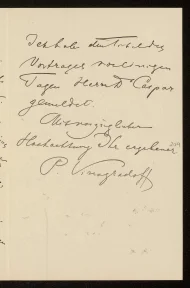 Ich habe den Titel des
Vortrages vor einigen
Tagen Herrn Dr Caspar
gemeldet.
Mit vorzüglicher
Hochachtung Ihr ergebener
P. Vinogradoff